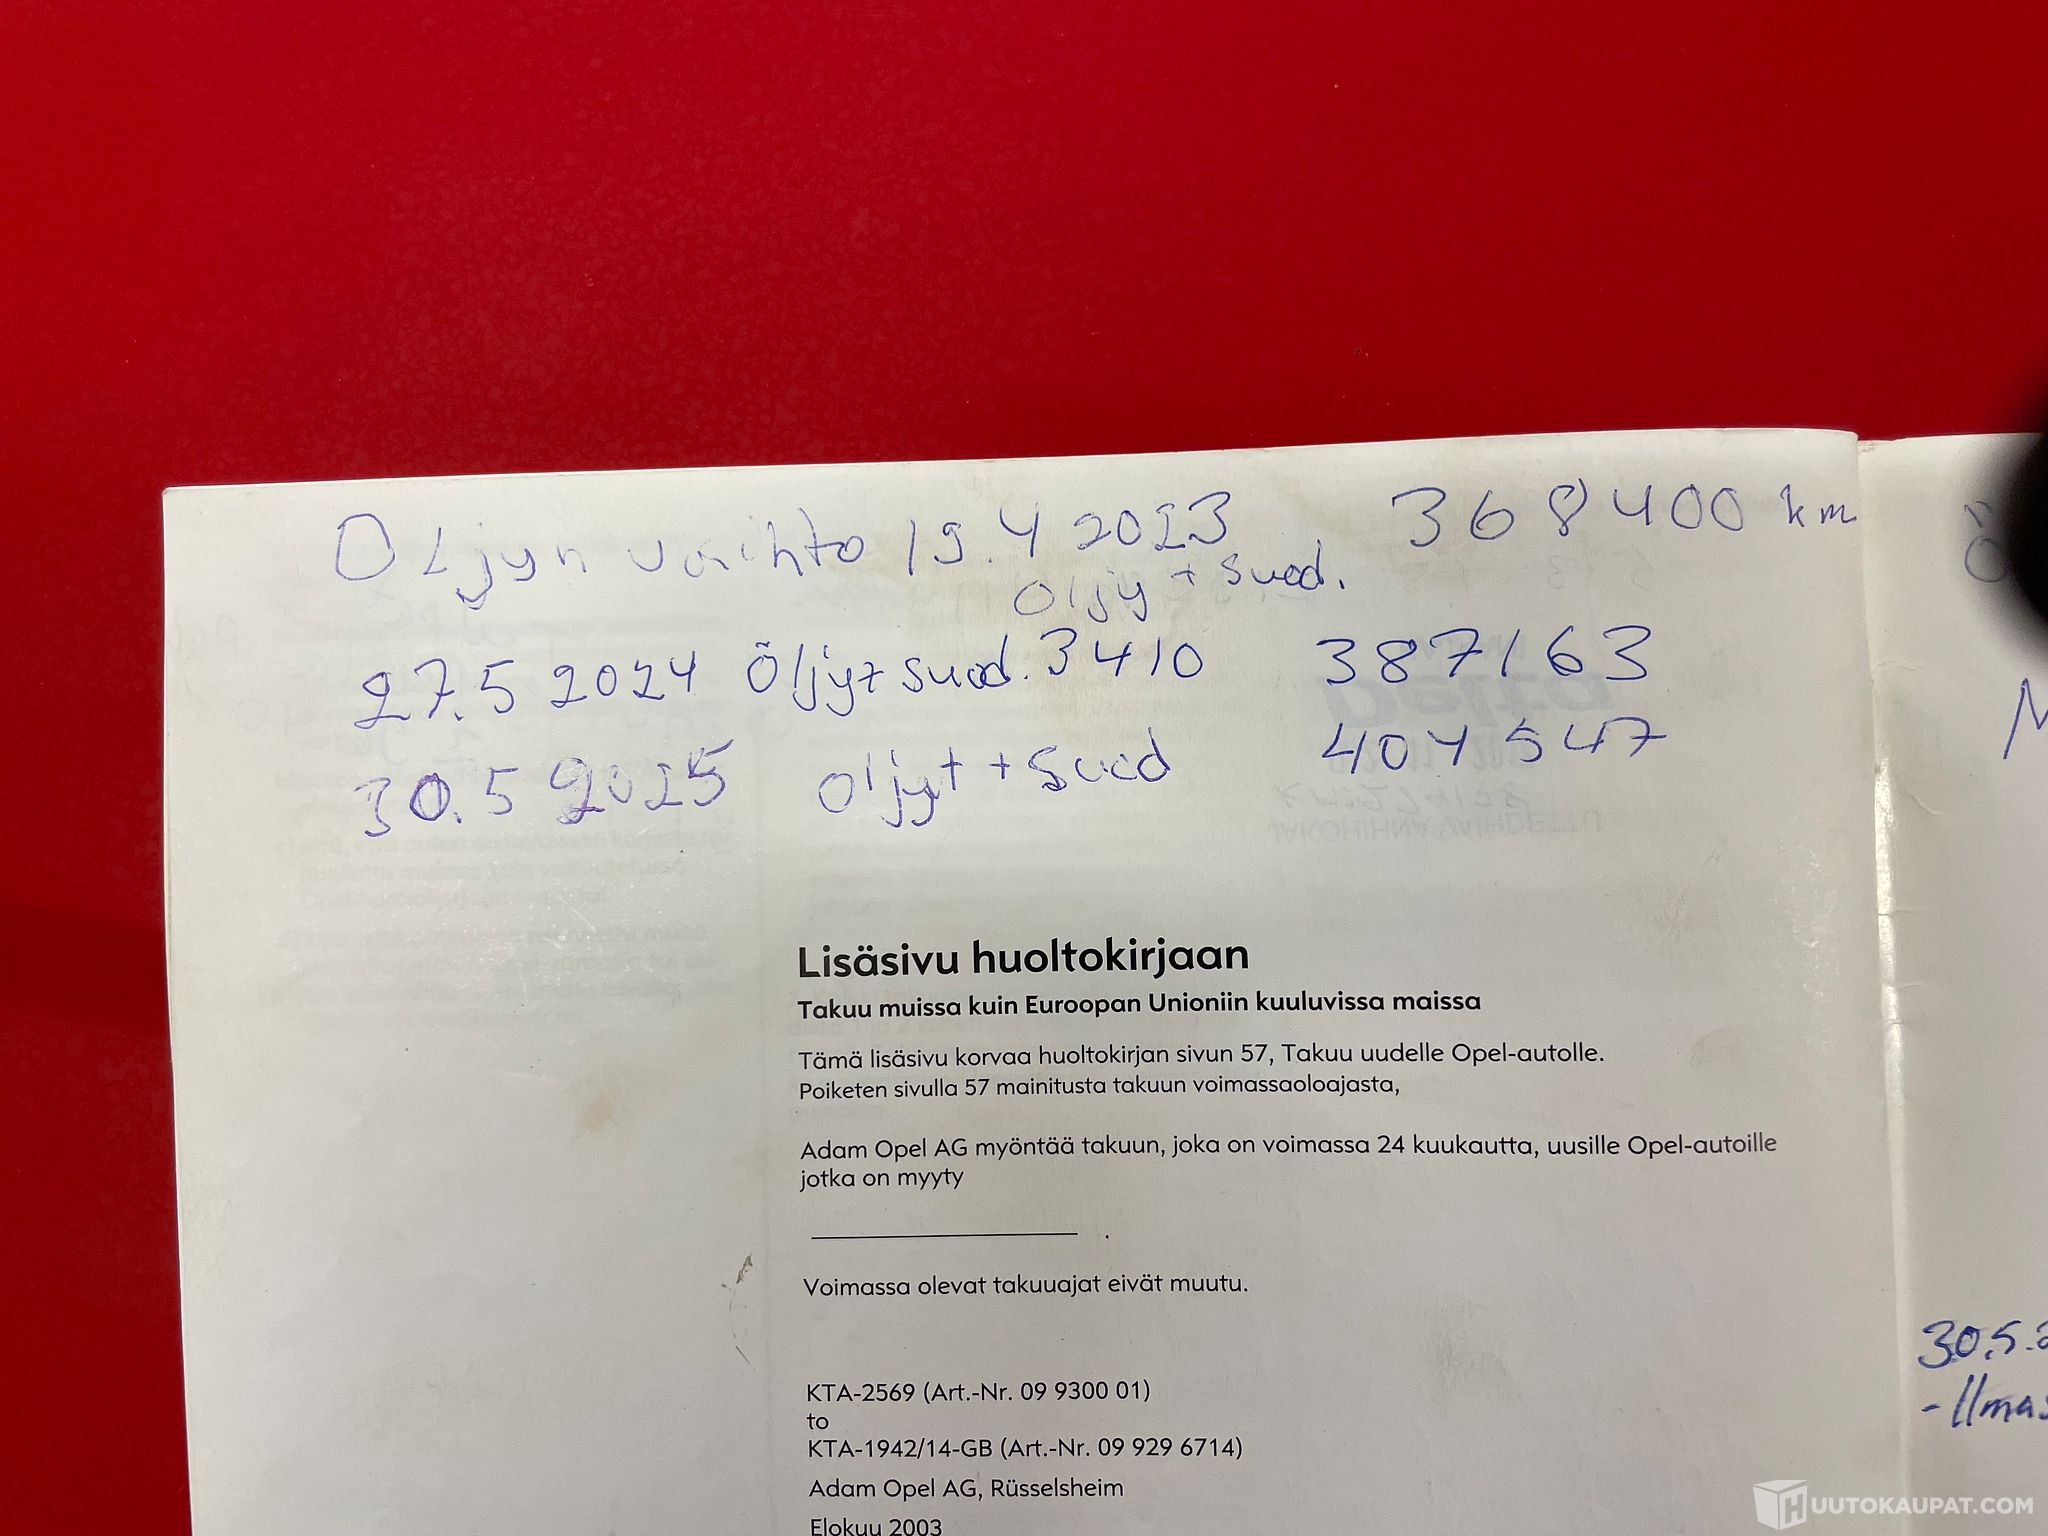 Öljyn vaihto 19.4 2023 368400 km
öljy + suod.
27.5 2024 Öljyt suod. 3410 387163
30.5 2025 öljyt + suod 404547
Lisäsivu huoltokirjaan
Takuu muissa kuin Euroopan Unioniin kuuluvissa maissa
Tämä lisäsivu korvaa huoltokirjan sivun 57, Takuu uudelle Opel-autolle.
Poiketen sivulla 57 mainitusta takuun voimassaoloajasta,
Adam Opel AG myöntää takuun, joka on voimassa 24 kuukautta, uusille Opel-autoille
jotka on myyty
.
Voimassa olevat takuuajat eivät muutu.
KTA-2569 (Art.-Nr. 09 9300 01)
to
KTA-1942/14-GB (Art.-Nr. 09 929 6714)
Adam Opel AG, Rüsselsheim
Elokuu 2003
30.5.2
- Ilmas
HUUTOKAUPAT.COM